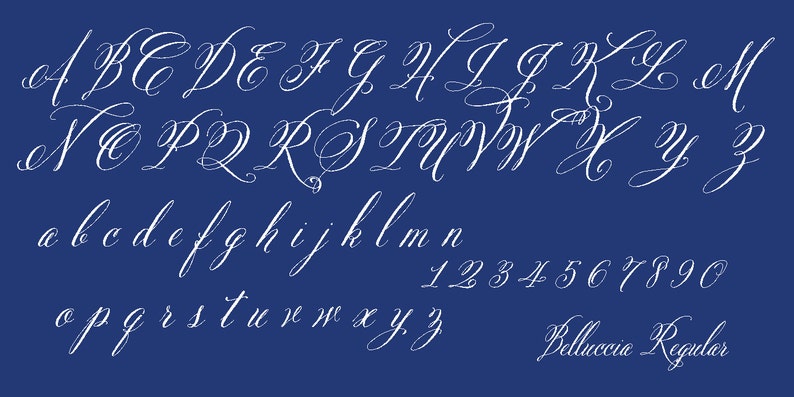 A B C D E F G H I J K L M
N O P Q R S T U V W X Y Z
a b c d e f g h i j k l m n
1 2 3 4 5 6 7 8 9 0
o p q r s t u v w x y z
Belluccia Regular